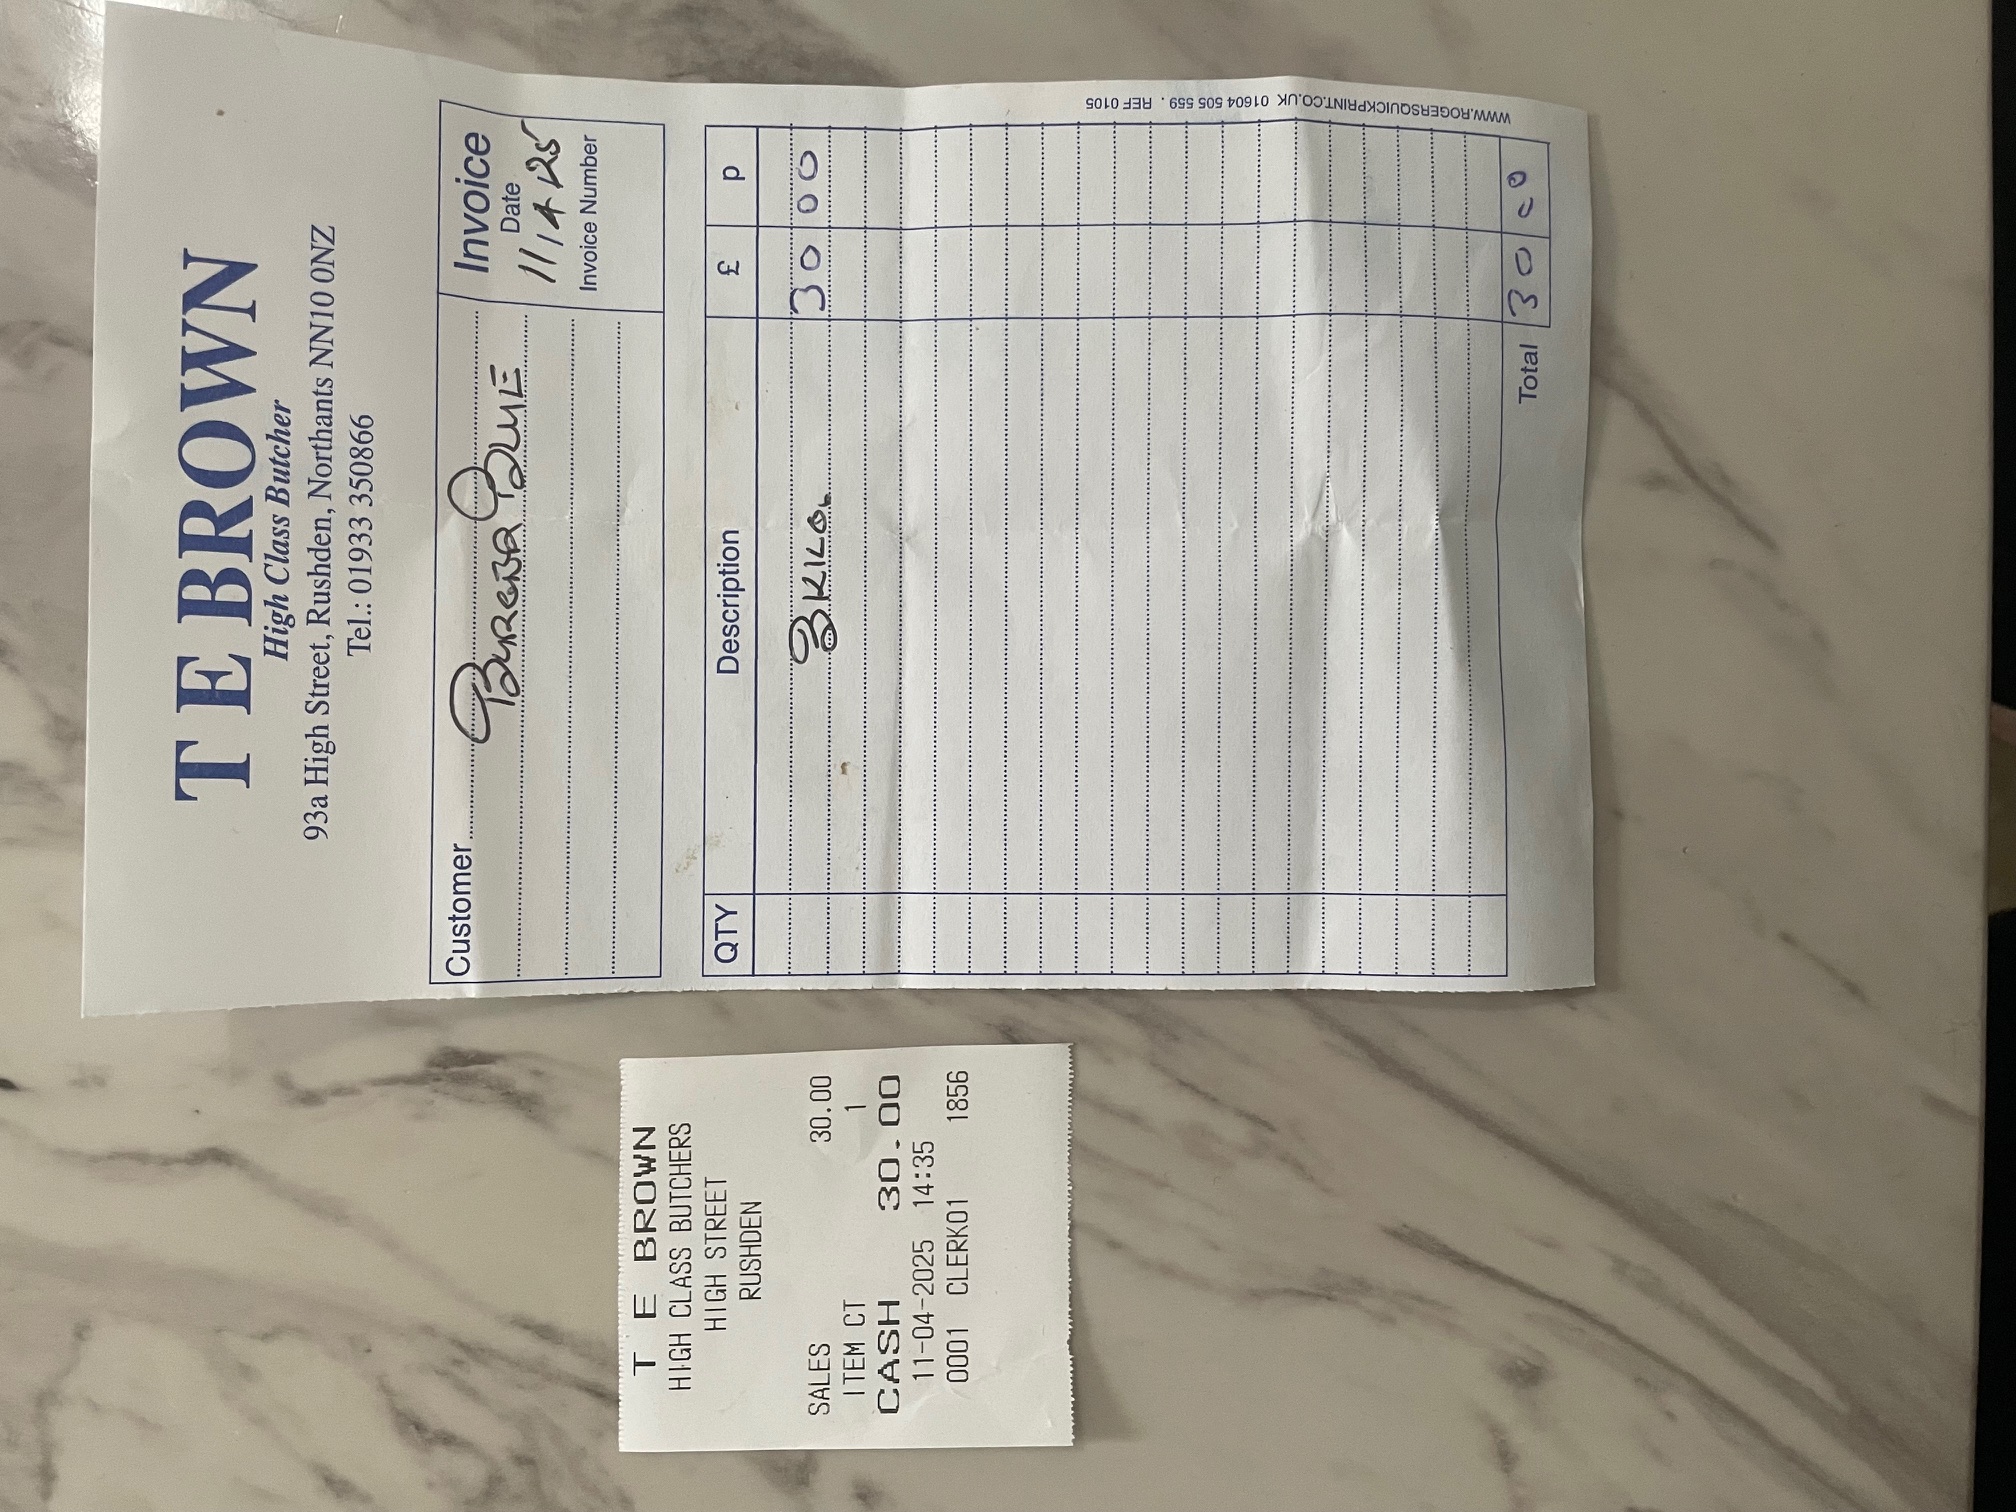 T E BROWN
HIGH CLASS BUTCHERS
HIGH STREET
RUSHDEN
SALES 30.00
ITEM CT 1
CASH 30.00
11-04-2025 14:35
0001 CLERK01 1856
T E BROWN
High Class Butcher
93a High Street, Rushden, Northants NN10 0NZ
Tel.: 01933 350866
Customer
BURGER BLUE
Invoice
Date
11/4/25
Invoice Number
QTY Description £ p
3 KILO. 30 00
Total 30 00
WWW.ROGERSQUICKPRINT.CO.UK 01604 505 559 . REF 0105